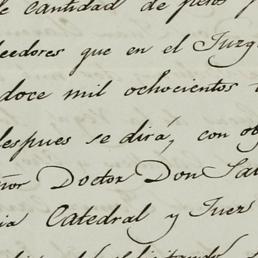 cantidad de pesos
eedores que en el Juzg
doce mil ochocientos
espues se dirá, con
ñor Doctor Don
ia Catedral y Juez